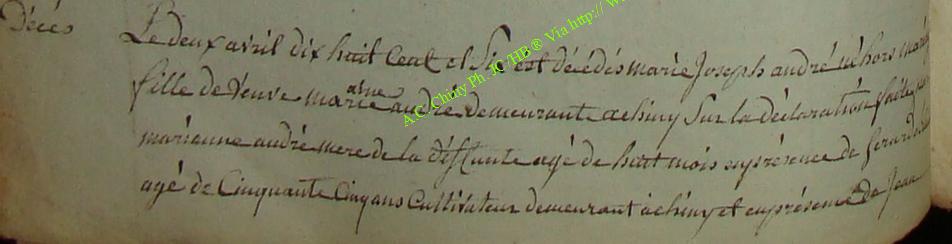 Décès
Le deux avril dix huit Cent et Six est décédés marie Joseph andré né hors mariage
fille de veuve marie anne andré demeurante achiny Sur la déclaration faite par
marienne andré mere de la déffunte agé de huit mois en présence de
agé de Cinquante Cinq ans Cultivateur demeurant achiny et en présence de Jean
A.C. Chiny Ph. JC/HB® Via http://w